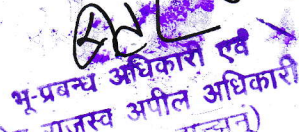 भू-प्रबन्ध अधिकारी एवं
राजस्व अपील अधिकारी